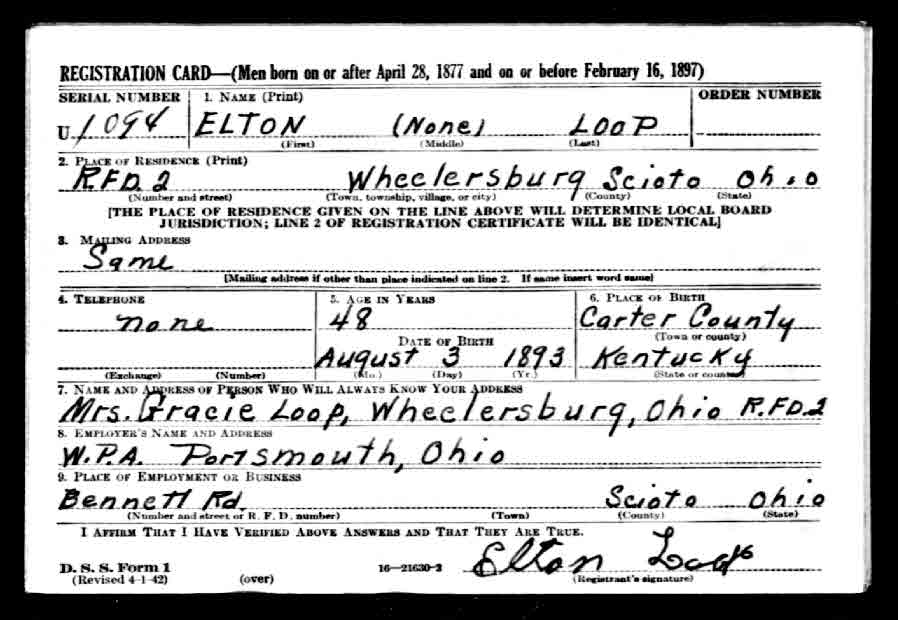 REGISTRATION CARD—(Men born on or after April 28, 1877 and on or before February 16, 1897)
SERIAL NUMBER 1. NAME (Print) ORDER NUMBER
U 1094 ELTON (None) LOOP
(First) (Middle) (Last)
2. PLACE OF RESIDENCE (Print)
R.F.D. 2 Wheelersburg Scioto Ohio
(Number and street) (Town, township, village, or city) (County) (State)
[THE PLACE OF RESIDENCE GIVEN ON THE LINE ABOVE WILL DETERMINE LOCAL BOARD
JURISDICTION; LINE 2 OF REGISTRATION CERTIFICATE WILL BE IDENTICAL]
3. MAILING ADDRESS
Same
[Mailing address if other than place indicated on line 2. If same insert word same]
4. TELEPHONE 5. AGE IN YEARS 6. PLACE OF BIRTH
none 48 Carter County
DATE OF BIRTH (Town or county)
August 3 1893 Kentucky
(Exchange) (Number) (Mo.) (Day) (Yr.) (State or country)
7. NAME AND ADDRESS OF PERSON WHO WILL ALWAYS KNOW YOUR ADDRESS
Mrs. Gracie Loop, Wheelersburg, Ohio R.F.D. 2
8. EMPLOYER'S NAME AND ADDRESS
W.P.A. Portsmouth, Ohio
9. PLACE OF EMPLOYMENT OR BUSINESS
Bennett Rd. Scioto Ohio
(Number and street or R. F. D. number) (Town) (County) (State)
I AFFIRM THAT I HAVE VERIFIED ABOVE ANSWERS AND THAT THEY ARE TRUE.
Elton Loop
D. S. S. Form 1
(Revised 4-1-42) (over) 16—21630-2 (Registrant's signature)